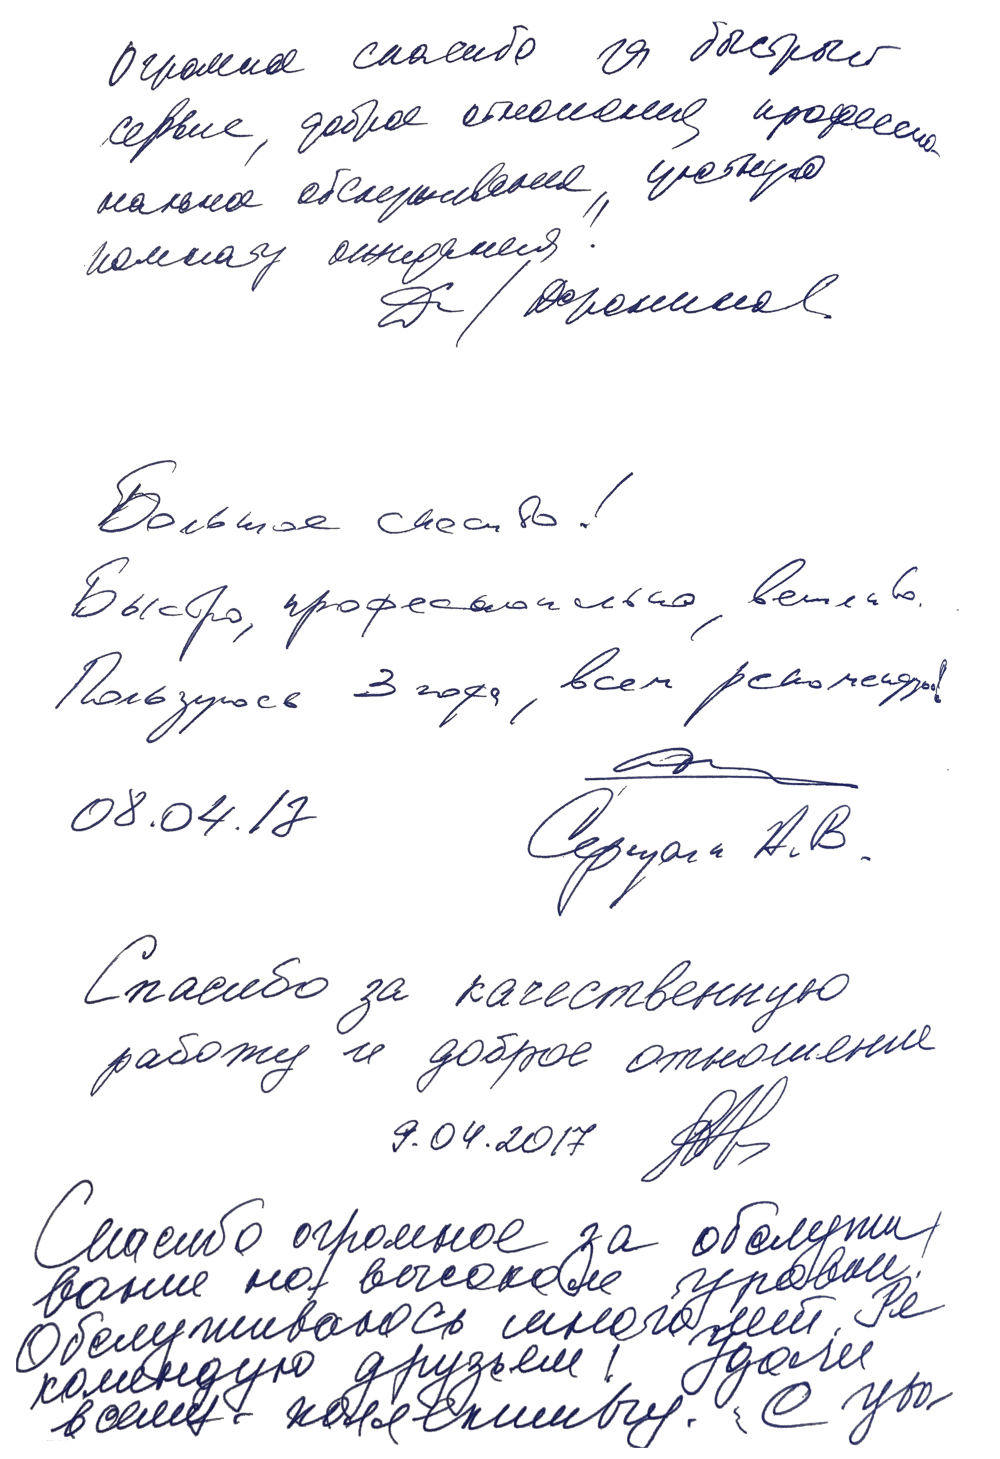 Огромное спасибо за быстрый
сервис, доброе отношение, профессио-
нальное обслуживание, уютную
комнату ожидания!!
Доронина
Большое спасибо!
Быстро, профессионально, вежливо.
Пользуюсь 3 года, всем рекомендую!
08.04.17
А.В.
Спасибо за качественную
работу и доброе отношение
9.04.2017
Спасибо огромное за обслужи
вание на высоком уровне!
Обслуживаюсь много лет. Ре
комендую друзьям! Удачи
всему коллективу. С ува-